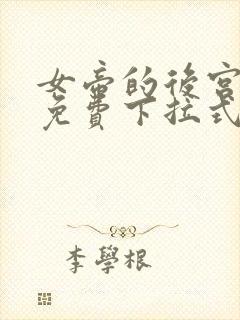 女帝的後宮
免費下拉式
李學根